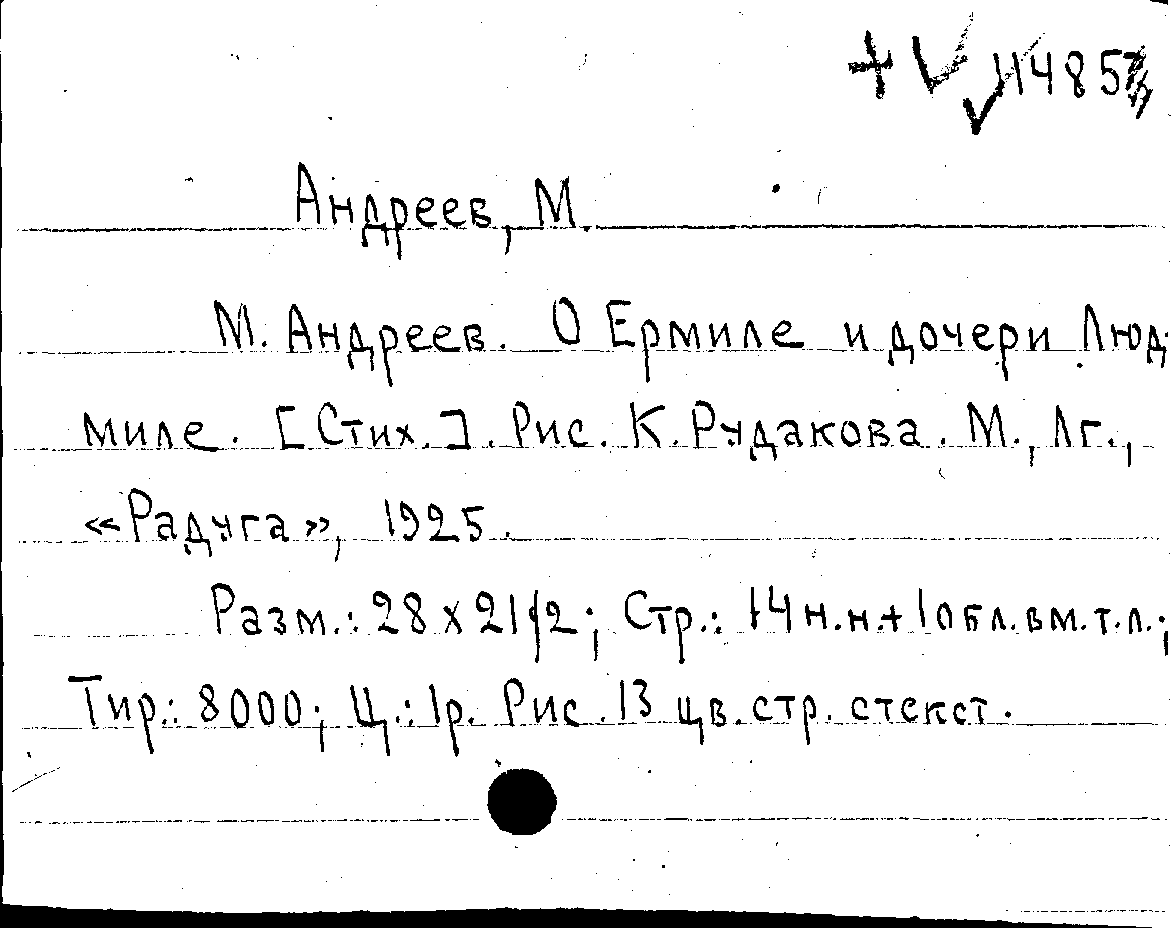 + 11485
Андреев, М.
М. Андреев. О Ермиле и дочери Люд-
миле. [Стих.]. Рис. К. Рудакова. М., Лг.,
«Радуга», 1925.
Разм.: 28 x 21 1/2; Стр.: 14 н.н. + 1 обл. вм. т.л.;
Тир.: 8000; Ц.: 1р. Рис. 13 цв. стр. с текст.